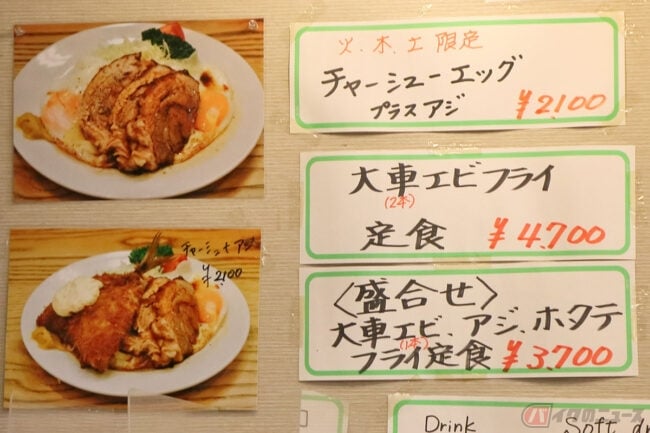 チャーシュー+アジ
¥2,100
火、木、土限定
チャーシューエッグ
プラスアジ ¥2100
大車エビフライ
(2本)
定食 ¥4,700
〈盛合せ〉
大車エビ、アジ、ホタテ
(1本)
フライ定食 ¥3,700
Drink
Soft dr
バイクのニュース